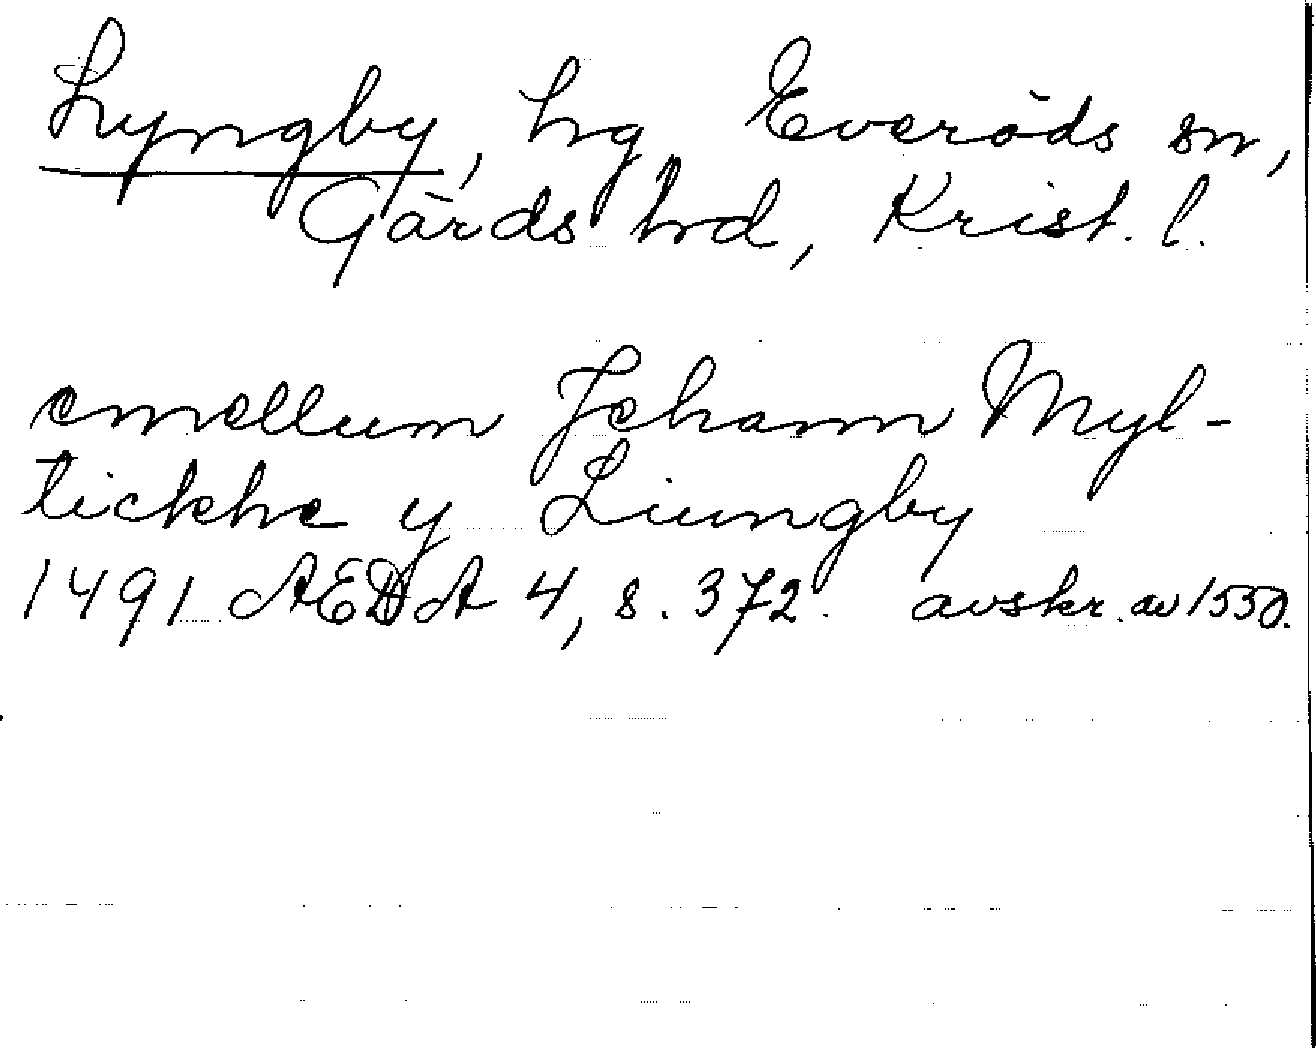 Lyngby, hg Everöds sn,
Gärds hrd, Krist. l.
emellum Jehann Myl-
tickhe y Liungby
1491 AEDA 4, s. 372. avskr. av 1550.